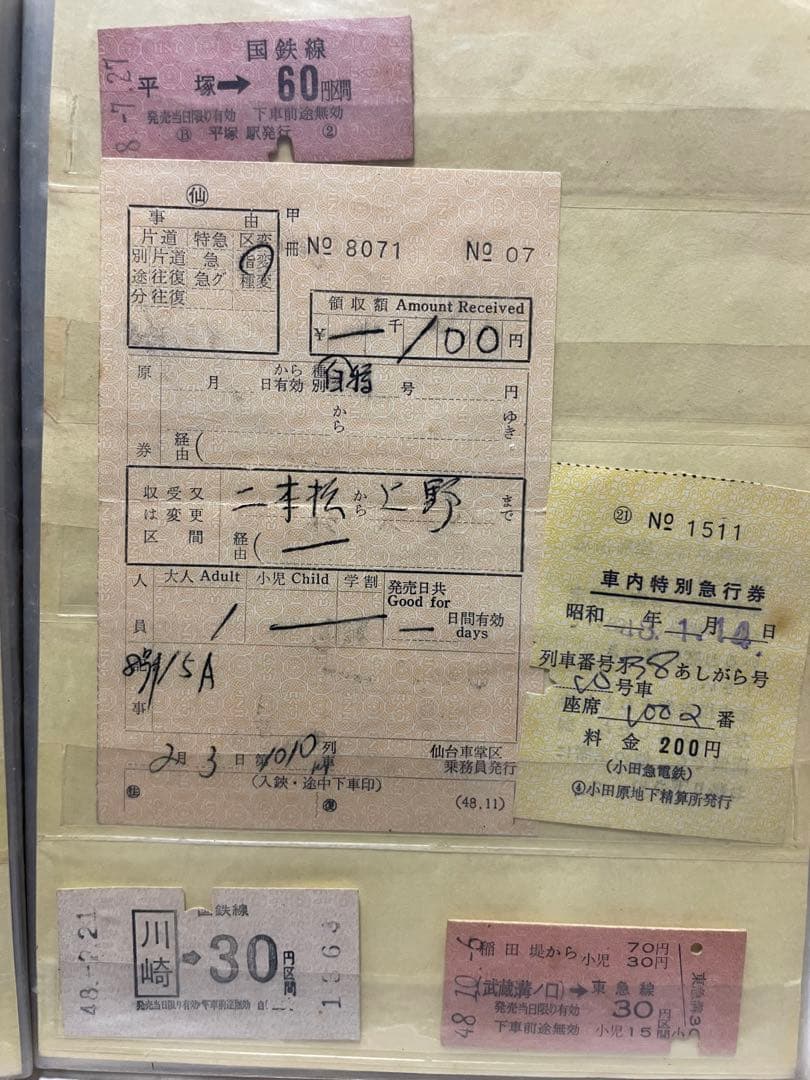 国鉄線
平塚➡60円区間
発売当日限り有効 下車前途無効
Ⓑ 平塚駅発行 ②
8-7.27
㊙仙
事由
片道 特急 区変
別片道 急 指変
途往復 急グ 種変
分往復
甲
冊 No 8071 No 07
領収額 Amount Received
¥ 一 千 /100 円
原券
月 日から有効 種別 自特 号 円
から ゆき
経由(
収受又は変更区間
二本松から上野まで
経由( ー
人員
大人 Adult 小児 Child 学割
発売日共
Good for
1 ー ー 日間有効
days
記事
15A
2月3日第1010M列車
仙台車掌区
乗務員発行
(入鋏・途中下車印)
(48.11)
㉑ No 1511
車内特別急行券
昭和 年 月 日
48.1.14.
列車番号 第38あしがら号
号車
座席 番
料金 200円
(小田急電鉄)
④小田原地下精算所発行
国鉄線
川崎➡30円区間
発売当日限り有効 下車前途無効
48.-2.21
稲田堤から 70円
小児 30円
(武蔵溝ノ口)➡東急線
発売当日限り有効 30円区間
下車前途無効 小児15円
48.10.-6
東急線30